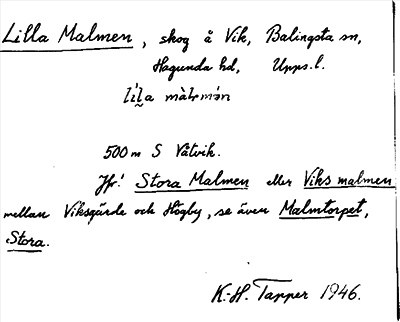 Lilla Malmen, skog å Vik, Balingsta sn,
Hagunda hd, Upps. l.
lìl̥a màlmən
500 m S Våtvik.
Jfr! Stora Malmen eller Viks malmen
mellan Viksgärde och Högby, se även Malmtorpet,
Stora.
K.-H. Tapper 1946.